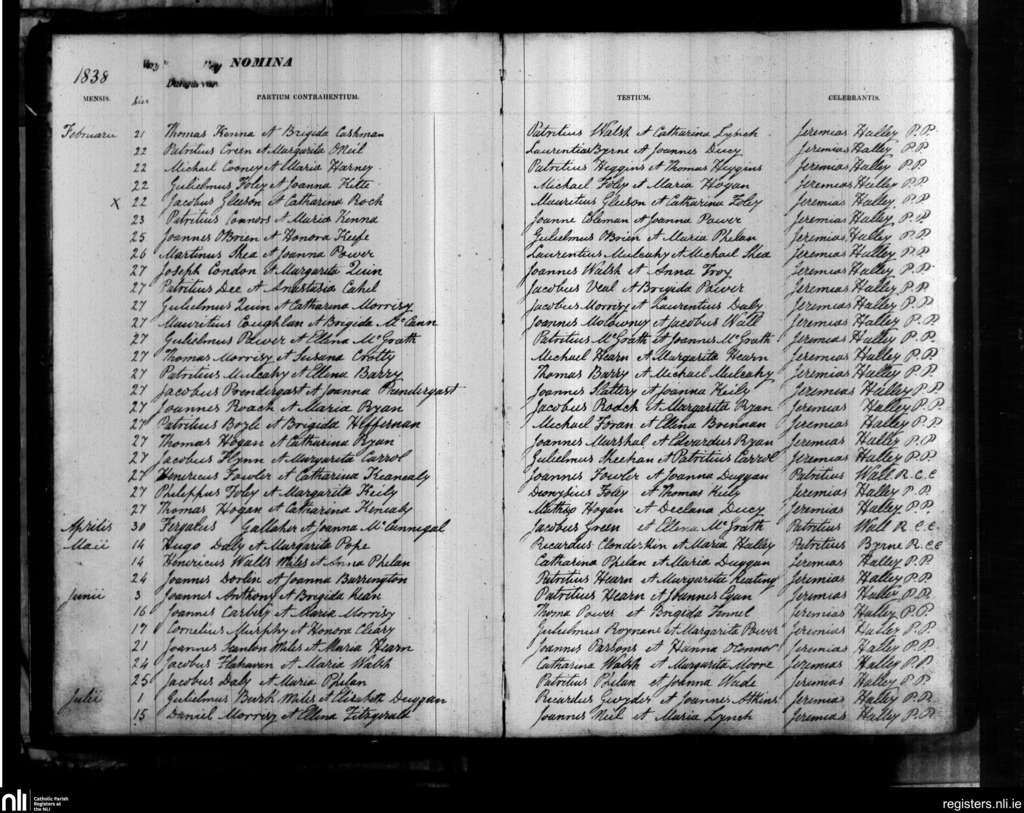 1838
NOMINA
MENSIS. PARTIUM CONTRAHENTIUM. TESTIUM. CELEBRANTIS.
Februarii 21 Thomas Kenna et Brigida Cashman Patritius Walsh et Catharina Lynch Jeremias Halley P.P.
22 Patritius Creen et Margarita ONeil Laurentius Byrne et Joannis Ducy Jeremias Halley P.P.
22 Michael Cooney et Maria Harney Patritius Higgins et Thomas Higgins Jeremias Halley P.P.
22 Gulielmus Foley et Joanna Kitte Michael Foley et Maria Hogan Jeremias Halley P.P.
X 22 Jacobus Gleeson et Catharina Roch Mauritius Gleeson et Catharina Foley Jeremias Halley P.P.
23 Patritius Connors et Maria Kenna Joanne Coleman et Joanna Power Jeremias Halley P.P.
25 Joannes OBrien et Honora Keefe Gulielmus OBrien et Maria Phelan Jeremias Halley P.P.
26 Martinus Shea et Joanna Power Laurentius Mulcahy et Michael Shea Jeremias Halley P.P.
27 Joseph Condon et Margarita Quin Joannes Walsh et Anna Troy Jeremias Halley P.P.
27 Patritius Dee et Anastasia Cahel Jacobus Veal et Brigida Power Jeremias Halley P.P.
27 Gulielmus Quin et Catharina Morrisy Jacobus Morrisy et Laurentius Daly Jeremias Halley P.P.
27 Mauritius Coughlan et Brigida McCann Joannes Molowney et Jacobus Wall Jeremias Halley P.P.
27 Gulielmus Power et Ellena McGrath Patritius McGrath et Joannes McGrath Jeremias Halley P.P.
27 Thomas Morrisy et Susana Crotty Michael Hearn et Margarita Hearn Jeremias Halley P.P.
27 Patritius Mulcahy et Ellena Barry Thomas Barry et Michael Mulcahy Jeremias Halley P.P.
27 Jacobus Prendergast et Joanna Prendergast Joannes Slattery et Joanna Keily Jeremias Halley P.P.
27 Joannes Roach et Maria Ryan Jacobus Roach et Margarita Ryan Jeremias Halley P.P.
27 Patritius Boyle et Brigida Heffernan Michael Foran et Ellena Brennan Jeremias Halley P.P.
27 Thomas Hogan et Catharina Ryan Joannes Marshal et Edvardus Ryan Jeremias Halley P.P.
27 Jacobus Flynn et Margarita Carrol Gulielmus Sheehan et Patritius Carrol Jeremias Halley P.P.
27 Henericus Fowler et Catharina Keanealy Joannes Fowler et Joanna Duggan Patritius Wall R.C.C
27 Philippus Foley et Margarita Keily Dionysius Foley et Thomas Keily Jeremias Halley P.P.
27 Thomas Hogan et Catharina Keniady Matheo Hogan et Declana Ducy Jeremias Halley P.P.
Aprilis 30 Fergatus Gallaher et Joanna McCunnegal Jacobus Green et Ellena McGrath Patritius Wall R.C.C.
Maii 14 Hugo Daly et Margarita Pope Ricardus Clonderkin et Maria Halley Patritius Byrne R.C.C
14 Henericus Walls Miles et Anna Phelan Catharina Phelan et Maria Duggan Jeremias Halley P.P.
24 Joannis Dorlin et Joanna Barrington Patritius Hearn et Margarita Keating Jeremias Halley P.P.
Junii 3 Joannes Anthony et Brigida Kean Patritius Hearn et Joannes Egan Jeremias Halley P.P.
16 Joannes Carbery et Maria Morrisy Thoma Power et Brigida Fennel Jeremias Halley P.P.
17 Cornelius Murphy et Honora Cleary Gulielmus Roynane et Margarita Power Jeremias Halley P.P.
21 Joannes Fanton Miles et Maria Hearn Joannis Parsons et Hanna OConnor Jeremias Halley P.P.
24 Jacobus Flahavan et Maria Walsh Catharina Walsh et Margarita Moore Jeremias Halley P.P.
25 Jacobus Daly et Maria Phelan Patritius Phelan et Joanna Wade Jeremias Halley P.P.
Julii 1 Gulielmus Burk Miles et Elisabeth Duggan Ricardus Gwyder et Joannes Atkins Jeremias Halley P.P.
15 Daniel Morrisy et Ellena Fitzgerald Joannes Neil et Maria Lynch Jeremias Halley P.P.
nli Catholic Parish Registers at the NLI
registers.nli.ie